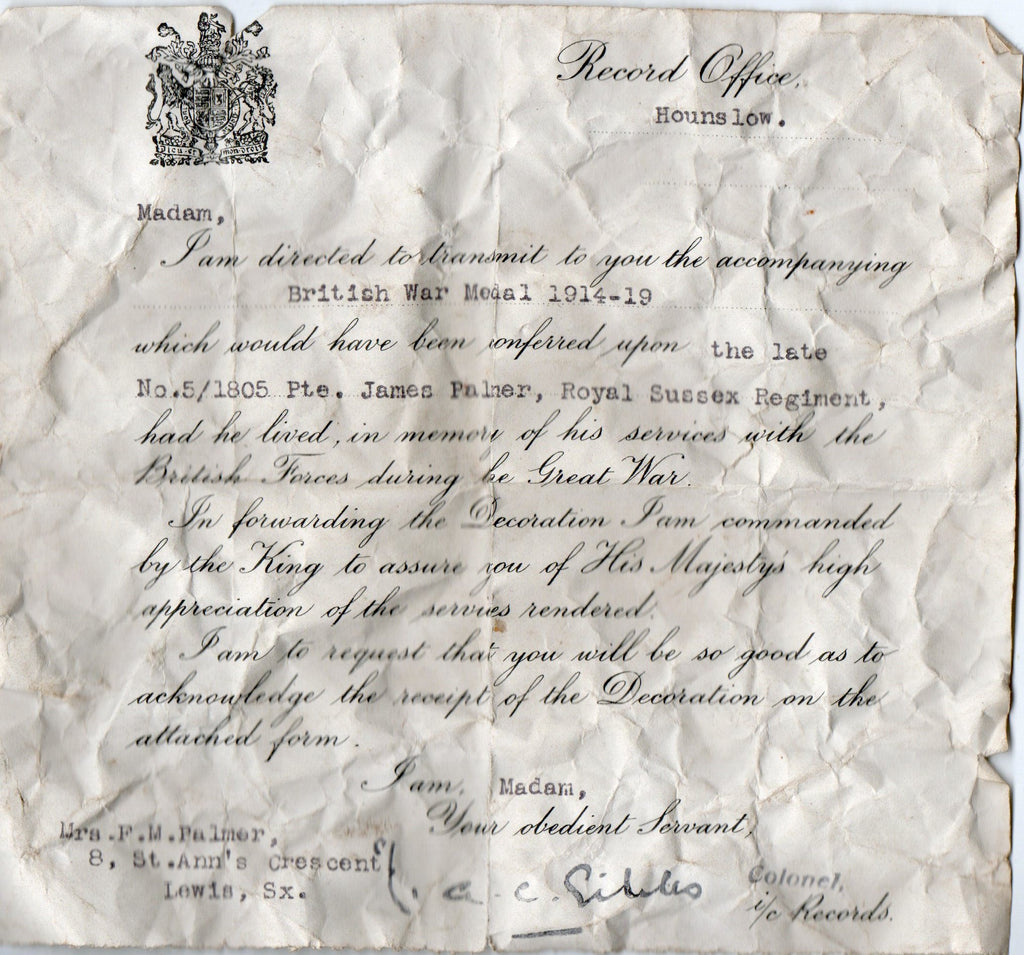 Dieu et mon droit
Record Office,
Hounslow.
Madam,
I am directed to transmit to you the accompanying
British War Medal 1914-19
which would have been onferred upon the late
No.5/1805 Pte. James Palmer, Royal Sussex Regiment,
had he lived, in memory of his services with the
British Forces during he Great War.
In forwarding the Decoration I am commanded
by the King to assure you of His Majesty's high
appreciation of the servies rendered.
I am to request that you will be so good as to
acknowledge the receipt of the Decoration on the
attached form.
I am, Madam,
Your obedient Servant,
Mrs.F.M.Palmer,
8, St.Ann's Crescent
Lewis, Sx.
a. c. Gibbs
Colonel,
i/c Records.